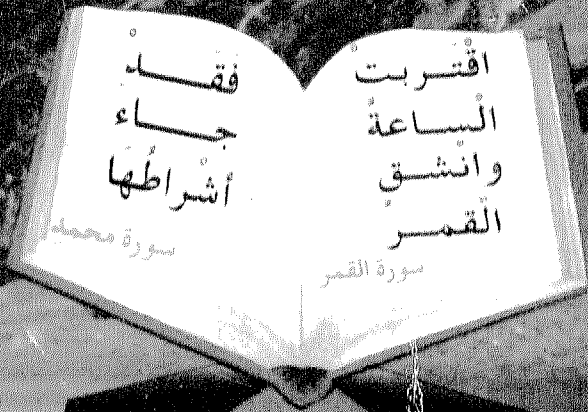 اقْتَربتْ
الْساعةُ
وانْشقِ
الْقمرُ
سورة القمر
فَقَدْ
جاء
أشْراطُهَا
سورة محمد